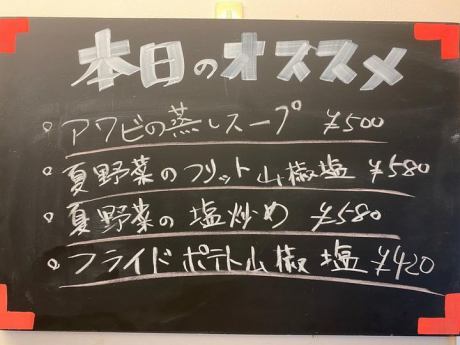 本日のオススメ
。アワビの蒸しスープ ¥500
。夏野菜のフリット山椒塩 ¥580
。夏野菜の塩炒め ¥580
。フライドポテト山椒塩 ¥420